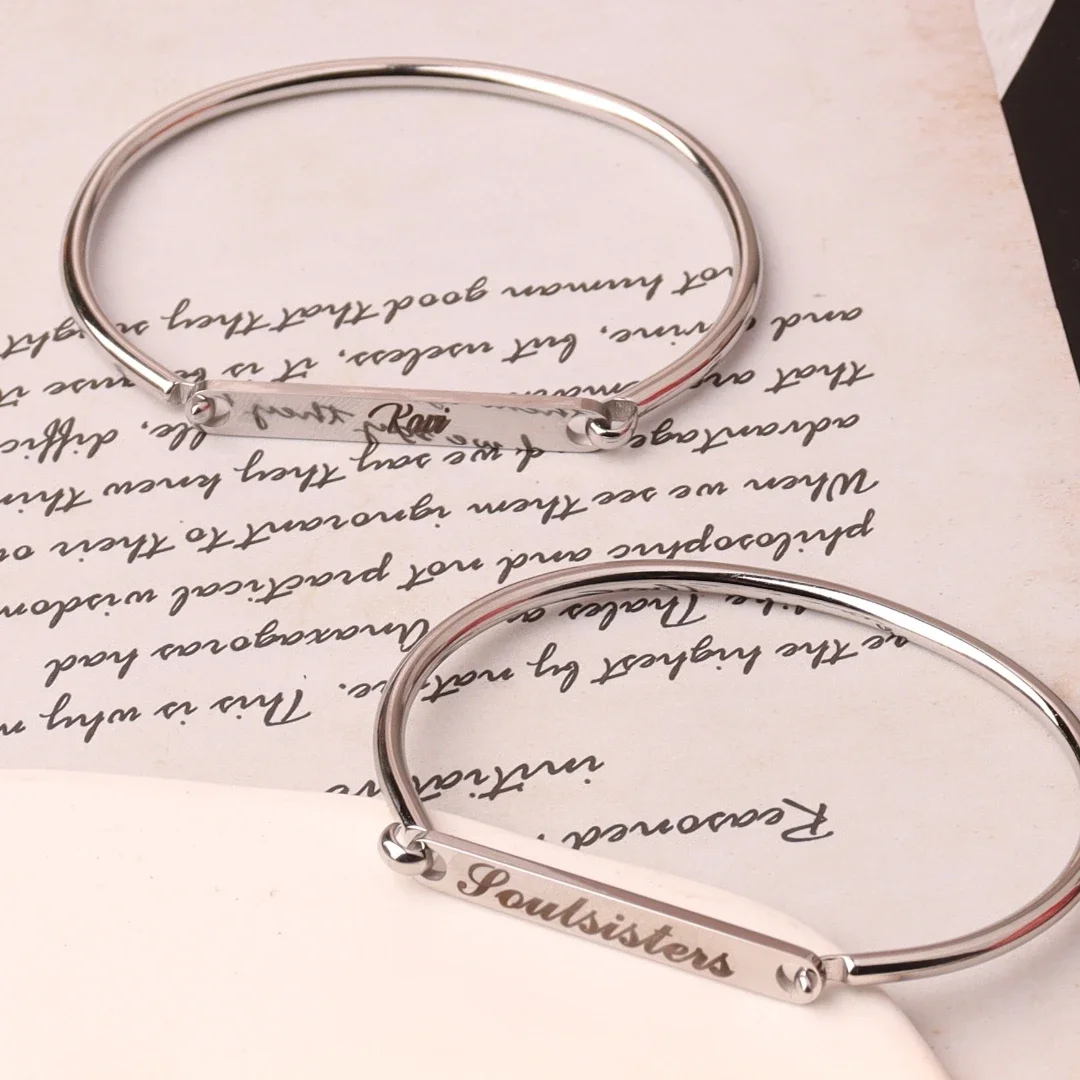 Ravi
Soulsisters
Reasoned
initiative
the highest by nature. This is why
like Thales Anaxagoras had
philosophic and not practical wisdom
When we see them ignorant to their
advantage we say they knew
that are they
and but useless, it is
not human good that they